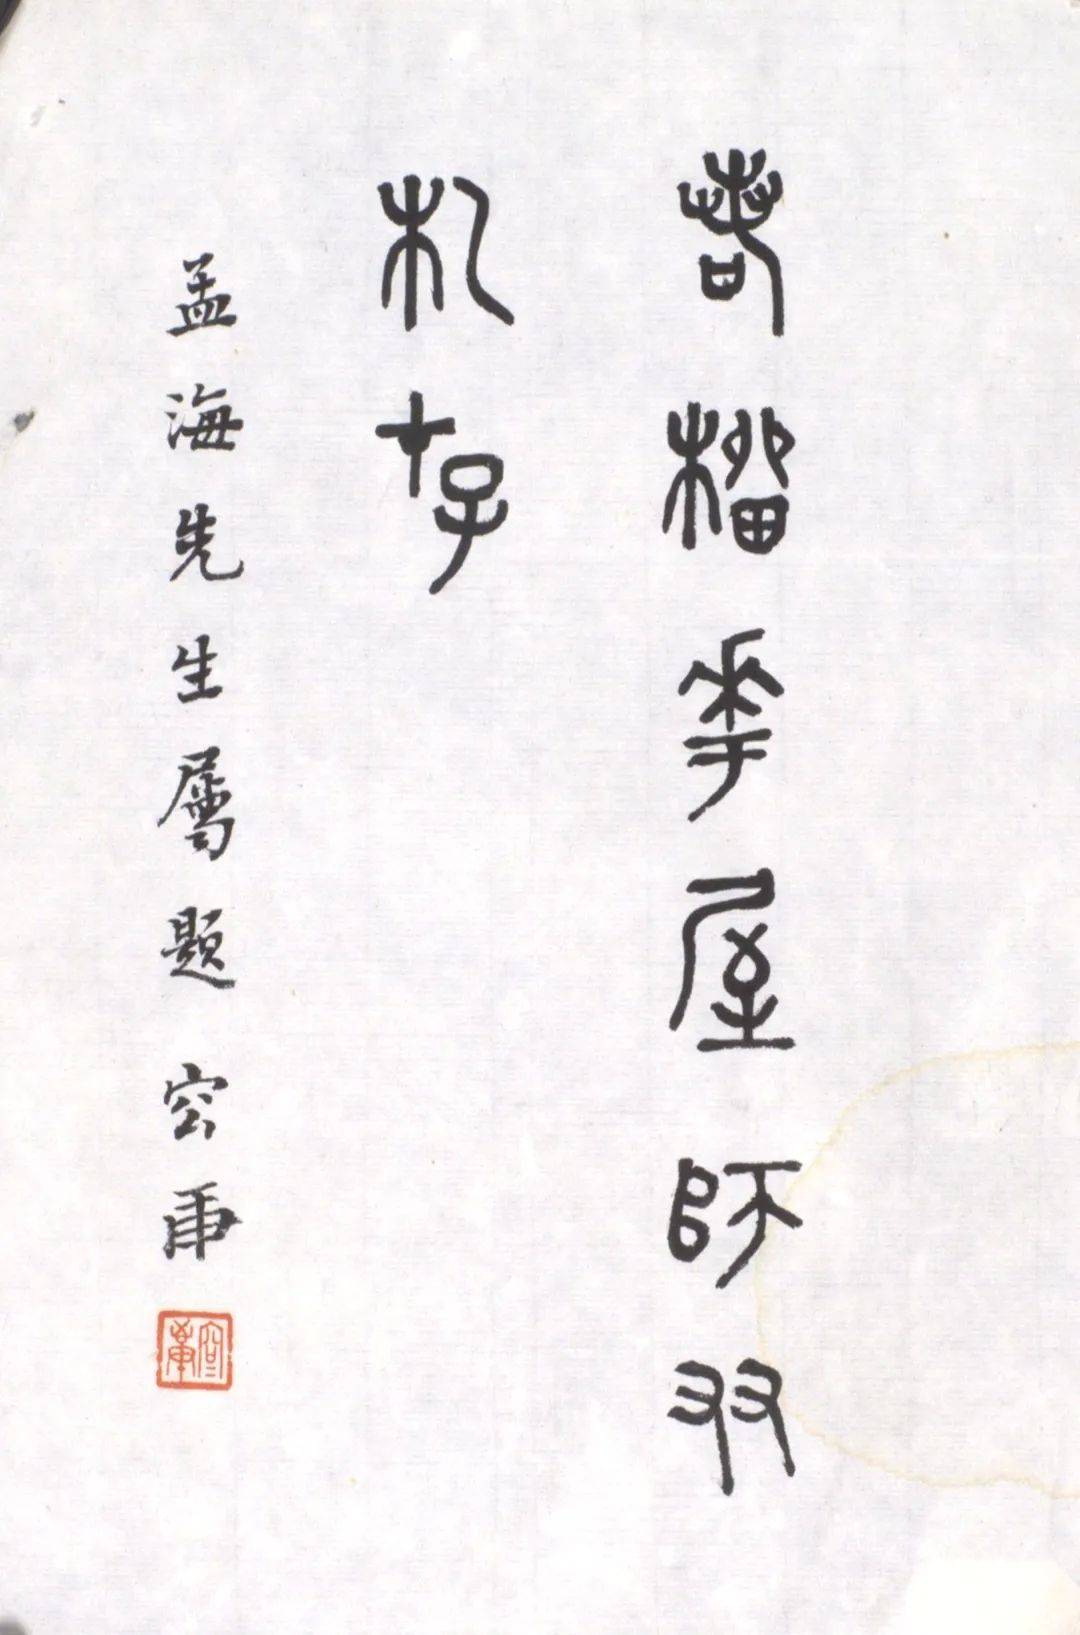 若榴華屋師友
札存
孟海先生屬題 容庚
容庚